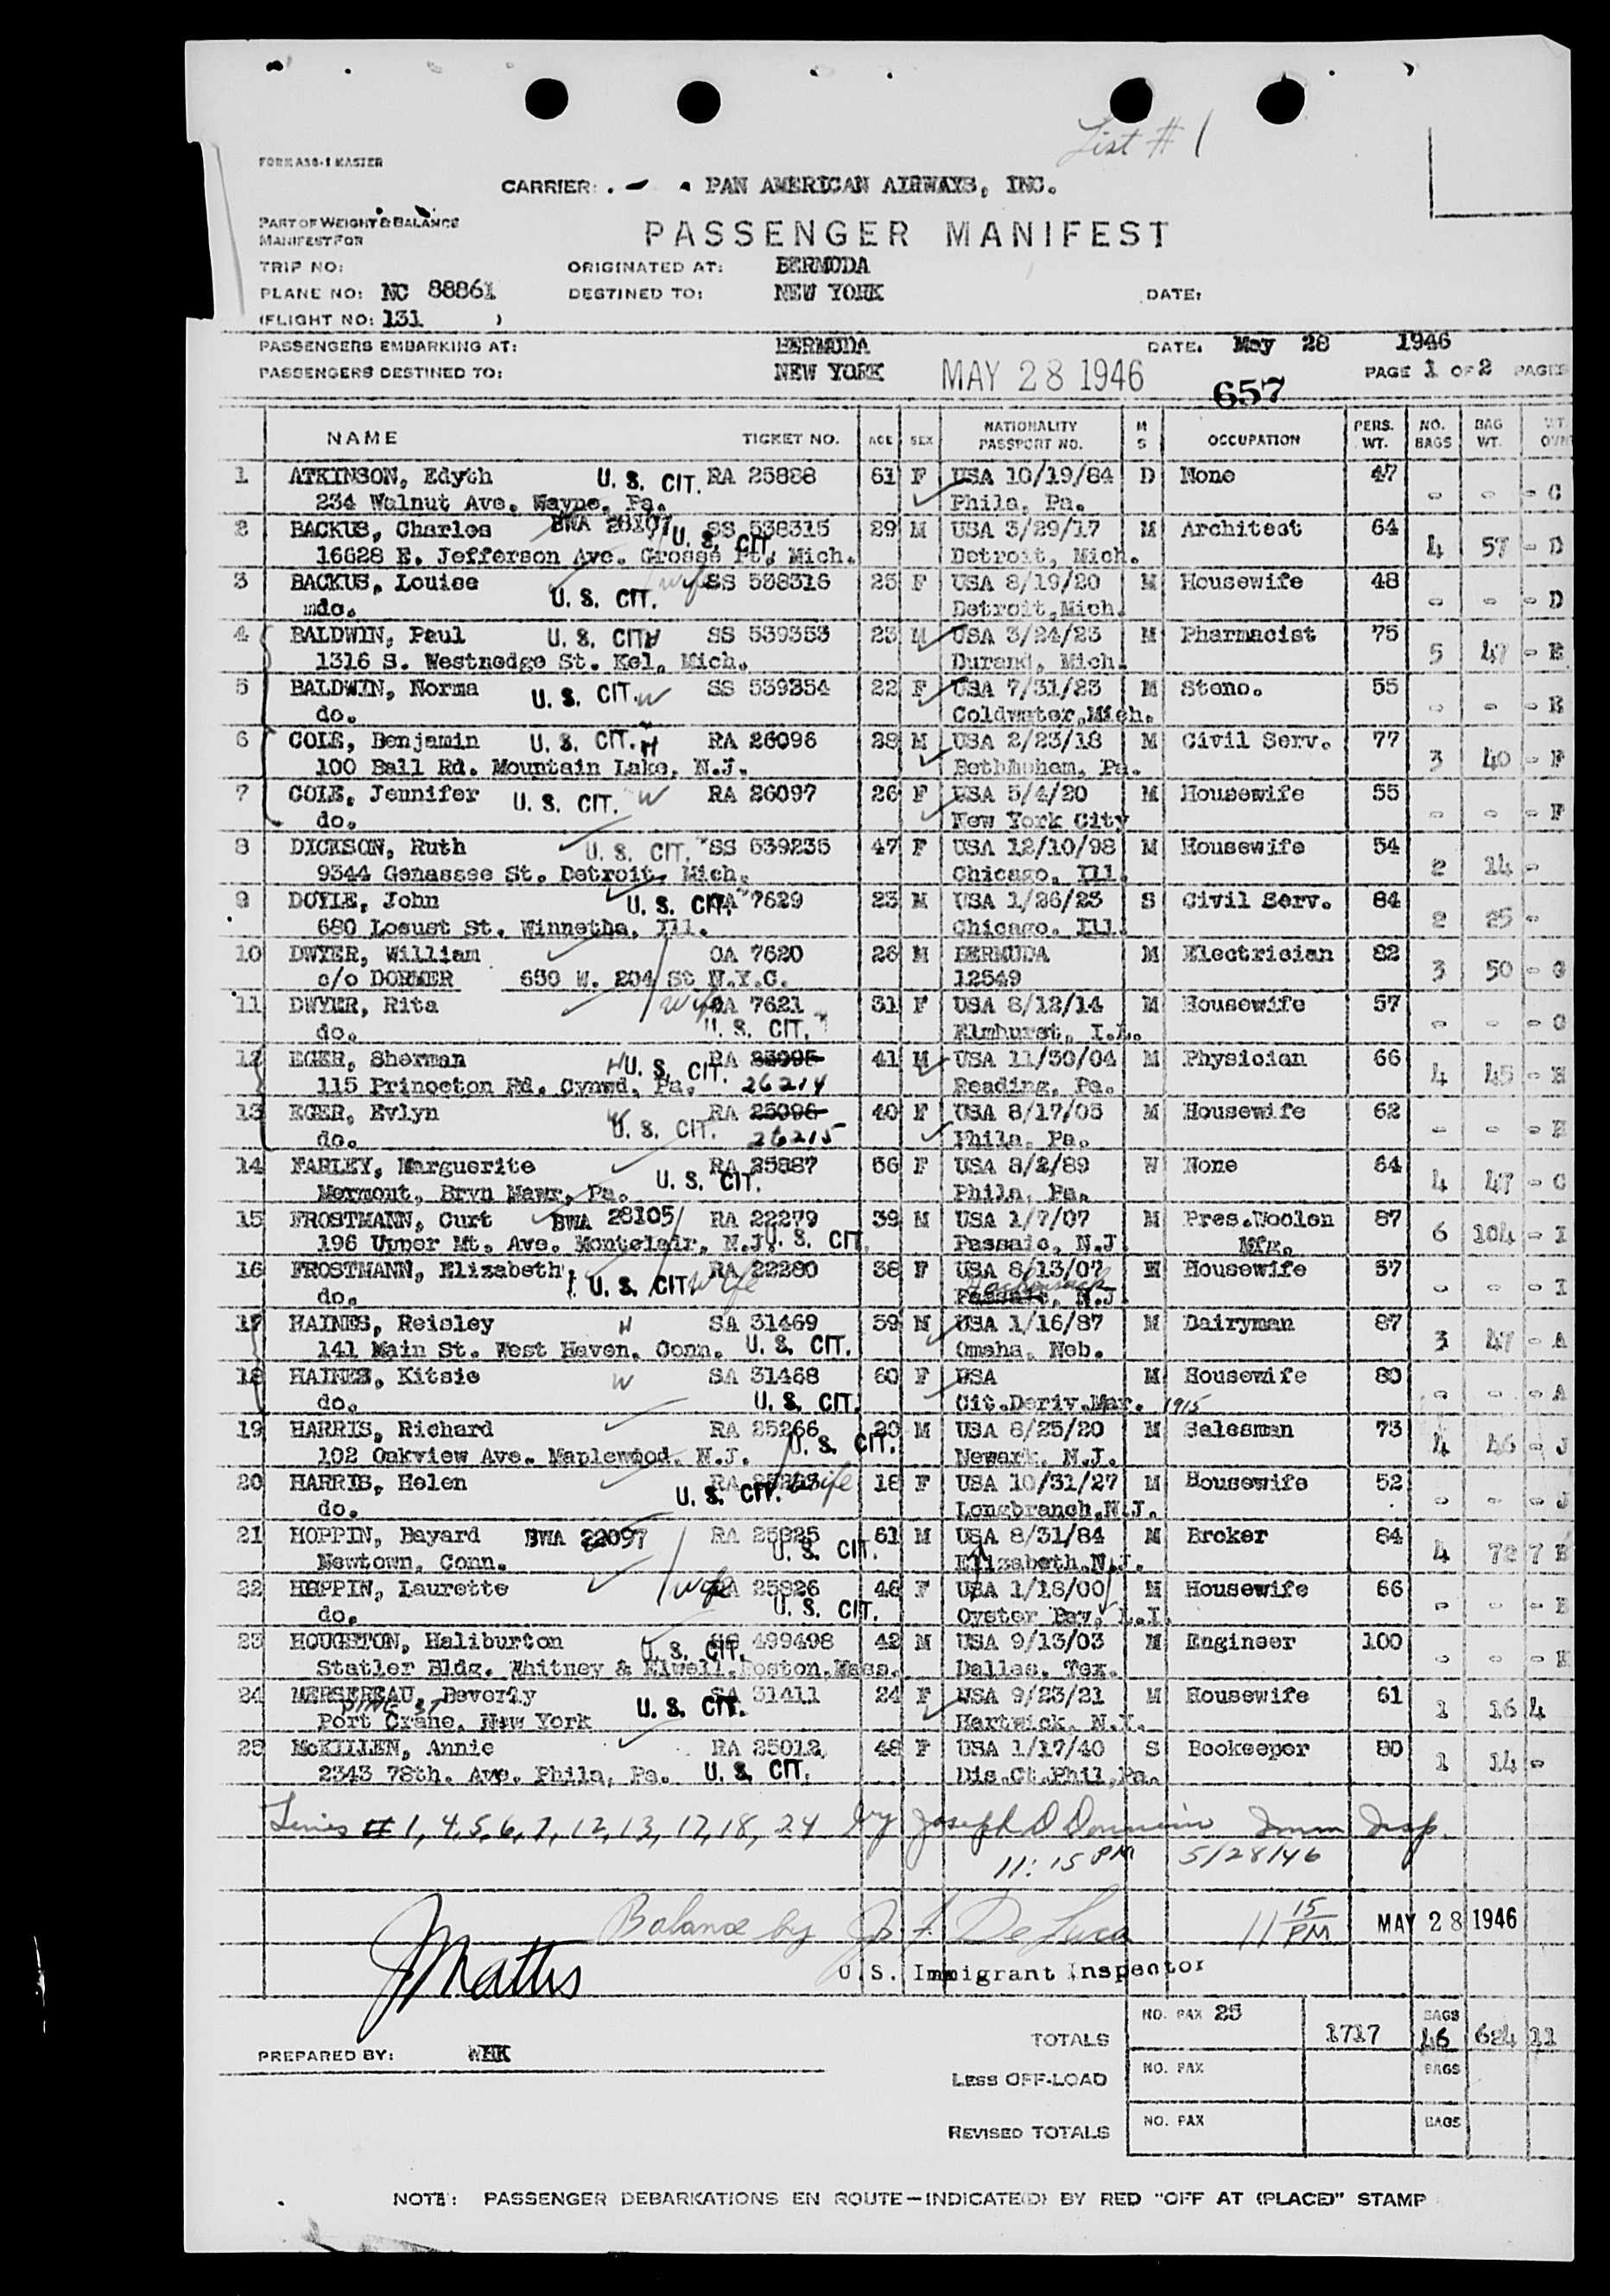 List # 1
FORM A80-1 MASTER
CARRIER: PAN AMERICAN AIRWAYS, INC.
PART OF WEIGHT & BALANCE
MANIFEST FOR
PASSENGER MANIFEST
TRIP NO: ORIGINATED AT: BERMUDA
PLANE NO: NC 88861 DESTINED TO: NEW YORK DATE:
(FLIGHT NO: 131 )
PASSENGERS EMBARKING AT: BERMUDA DATE: May 28 1946
PASSENGERS DESTINED TO: NEW YORK MAY 28 1946 657 PAGE 1 OF 2 PAGES
NAME TICKET NO. AGE SEX NATIONALITY PASSPORT NO. M S OCCUPATION PERS. WT. NO. BAGS BAG WT. WT.
1 ATKINSON, Edyth U. S. CIT. RA 25888 61 F USA 10/19/84 D None 47
234 Walnut Ave. Wayne, Pa. Phila, Pa. - - - C
2 BACKUS, Charles BWA 28107 U. S. CIT. SS 538315 29 M USA 3/29/17 M Architect 64
16628 E. Jefferson Ave. Grosse Pt. Mich. Detroit, Mich. 4 57 - D
3 BACKUS, Louise U. S. CIT. wife SS 538316 25 F USA 8/19/20 M Housewife 48
do. Detroit, Mich. - - - D
4 BALDWIN, Paul U. S. CIT. H SS 539353 23 M USA 3/24/23 M Pharmacist 75
1316 S. Westnedge St. Kal, Mich. Durand, Mich. 5 47 - E
5 BALDWIN, Norma U. S. CIT. W SS 539354 22 F USA 7/31/23 M Steno. 55
do. Coldwater, Mich. - - - E
6 COLE, Benjamin U. S. CIT. H RA 26096 28 M USA 2/23/18 M Civil Serv. 77
100 Ball Rd. Mountain Lake, N.J. Pa. 3 40 - F
7 COLE, Jennifer U. S. CIT. W RA 26097 26 F USA 5/4/20 M Housewife 55
do. New York City - - - F
8 DICKSON, Ruth U. S. CIT. SS 539235 47 F USA 12/10/98 M Housewife 54
9344 Genassee St. Detroit, Mich. Chicago, Ill. 2 14 -
9 DOYLE, John U. S. CIT. OA 7629 23 M USA 1/26/23 S Civil Serv. 84
680 Locust St. Winnetha, Ill. Chicago, Ill. 2 25 -
10 DWYER, William OA 7620 26 M BERMUDA M Electrician 82
c/o DORMER 650 W. 204 St N.Y.C. 12549 3 50 - G
11 DWYER, Rita wife OA 7621 31 F USA 8/12/14 M Housewife 57
do. U. S. CIT. Elmhurst, L.I. - - - G
12 EGER, Sherman H U. S. CIT. RA 41 M USA 11/30/04 M Physician 66
115 Princeton Rd. Cynwd, Pa. 26214 Reading, Pa. 4 45 - H
13 EGER, Evlyn W U. S. CIT. RA 25096 40 F USA 8/17/05 M Housewife 62
do. 26215 Phila, Pa. - - - H
14 FARLEY, Marguerite U. S. CIT. RA 25887 56 F USA 8/2/89 W None 64
Mermont, Bryn Mawr, Pa. Phila, Pa. 4 47 - C
15 FROSTMANN, Curt BWA 28105 RA 22279 39 M USA 1/7/07 M Pres. Woolen 87
196 Upper Mt. Ave. Montclair, N.J. U. S. CIT. Passaic, N.J. Mfg. 6 104 - I
16 FROSTMANN, Elizabeth U. S. CIT. wife RA 22280 38 F USA 8/13/07 M Housewife 57
do. Passaic, N.J. - - - I
17 HAINES, Reisley H SA 31469 59 M USA 1/16/87 M Dairyman 87
141 Main St. West Haven, Conn. U. S. CIT. Omaha, Neb. 3 47 - A
18 HAINES, Kitsie W SA 31468 60 F USA M Housewife 80
do. U. S. CIT. Cit. Deriv. Mar. 1915 - - - A
19 HARRIS, Richard RA 25266 20 M USA 8/25/20 M Salesman 73
102 Oakview Ave. Maplewood, N.J. U. S. CIT. Newark, N.J. 4 46 - J
20 HARRIS, Helen RA wife 18 F USA 10/31/27 M Housewife 52
do. U. S. CIT. Longbranch, N.J. - - - J
21 HOPPIN, Bayard BWA 22097 RA 25825 61 M USA 8/31/84 M Broker 84
Newtown, Conn. U. S. CIT. Elizabeth, N.J. 4 72 7 B
22 HOPPIN, Laurette wife RA 25826 46 F USA 1/18/00 M Housewife 66
do. U. S. CIT. Oyster Bay, L.I. - - - B
23 HOUGHTON, Haliburton U. S. CIT. SS 499498 42 M USA 9/13/03 M Engineer 100
Statler Bldg. Whitney & Elwell, Boston, Mass. Dallas, Tex. - - - K
24 MERSEREAU, Beverly SA 31411 24 F USA 9/23/21 M Housewife 61
PINE ST Port Crane, New York U. S. CIT. Hartwick, N.Y. 1 16 4
25 McKILLEN, Annie RA 25012 48 F USA 1/17/40 S Bookeeper 80
2343 78th. Ave. Phila, Pa. U. S. CIT. Dis. Ct. Phil, Pa. 1 14 -
Lines # 1, 4, 5, 6, 7, 12, 13, 17, 18, 24 by Joseph D Imm Insp
11:15 PM 5/28/46
Balance by J. F. De Luca 11 15 PM MAY 28 1946
JMattis
U.S. Immigrant Inspector
NO. PAX 25 BAGS
TOTALS 1717 46 624 11
PREPARED BY: WHK
LESS OFF-LOAD NO. PAX BAGS
REVISED TOTALS NO. PAX BAGS
NOTE: PASSENGER DEBARKATIONS EN ROUTE—INDICATE(D) BY RED "OFF AT (PLACE)" STAMP